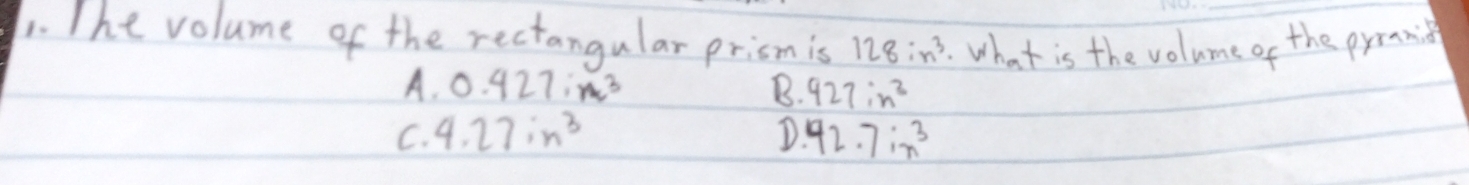 1. The volume of the rectangular prism is 128 in³. What is the volume of the pyramid
A. 0.427 in³ B. 427 in³
C. 4.27 in³ D. 42.7 in³